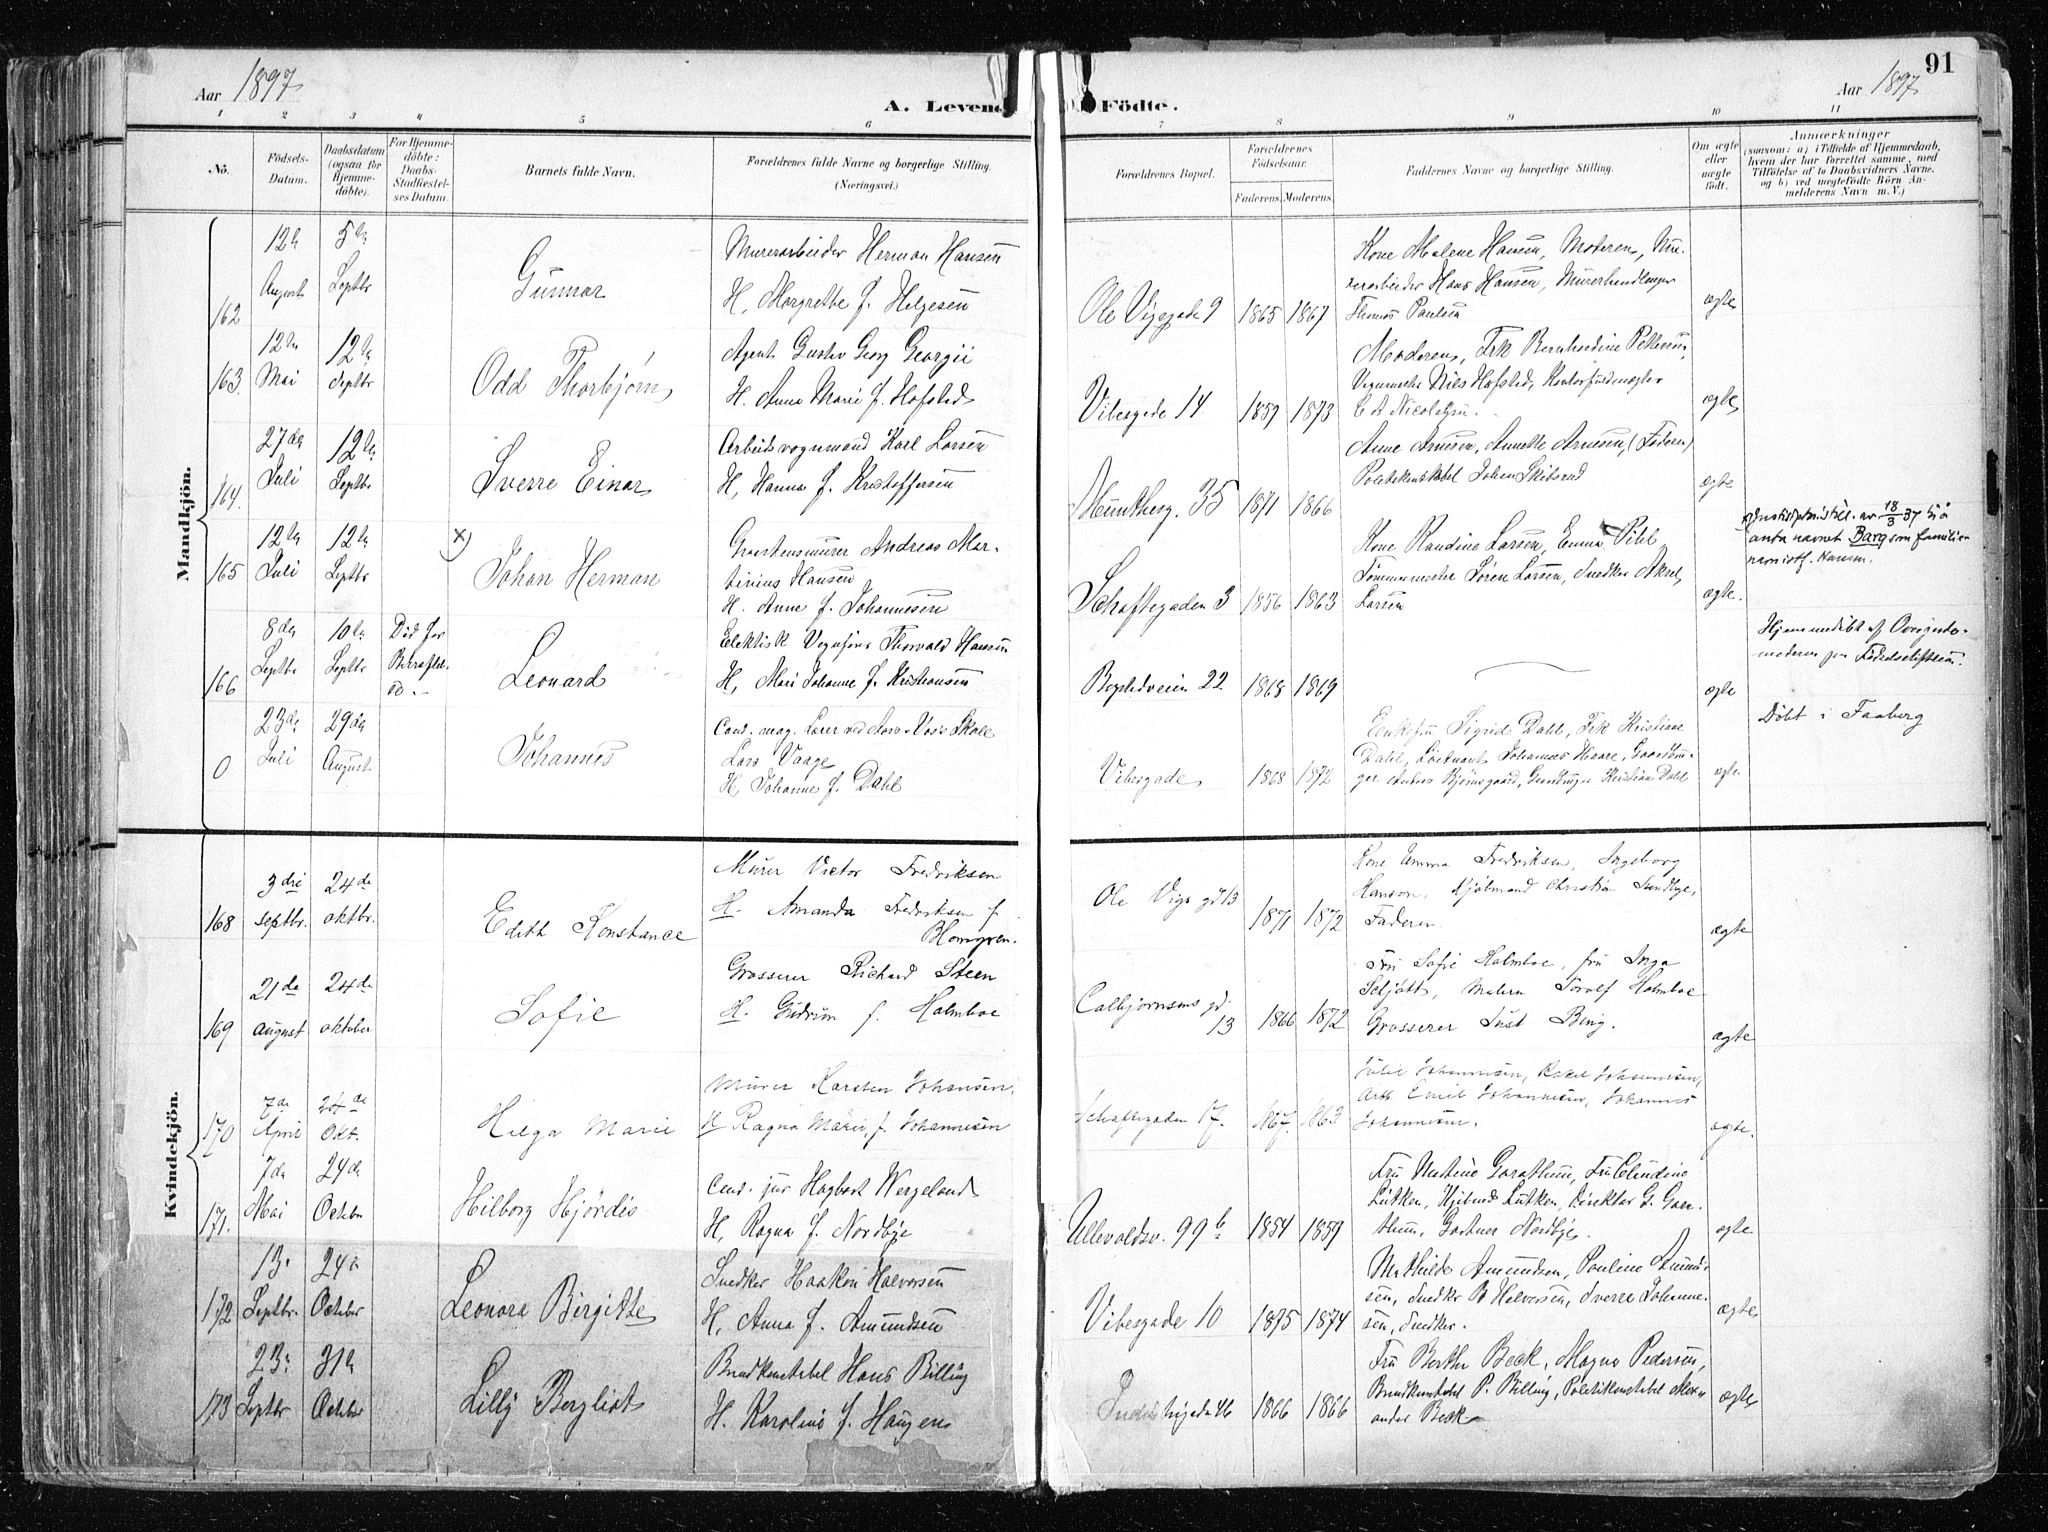 91
Aar 1897
A. Levende Födte.
Aar 1897
1 2 3 4 5 6 7 8 9 10 11
No.
Födsels-
Datum.
Daabsdatum
(ogsaa for
Hjemme-
döbte).
For Hjemme-
döbte:
Daabs-
Stadfæstel-
ses Datum.
Barnets fulde Navn.
Forældrenes fulde Navne og borgerlige Stilling.
(Næringsvei.)
Forældrenes Bopæl.
Forældrenes
Födselsaar.
Faderens Moderens
Faddernes Navne og borgerlige Stilling.
Om ægte
eller
uægte
födt.
Anmærkninger
(saasom: a) i Tilfælde af Hjemmedaab,
hvem der har forrettet samme, med
Tilföielse af to Daabsvidners Navne,
og b) ved uægtefödte Börn An-
melderens Navn m. V.)
Mandkjön.
162
12te
August
5te
Septbr
Gunnar
Murerarbeider Herman Hansen
H. Margrethe f. Helgesen
Ole Vigsgade 9
1865 1867
Kone Malene Hansen, Moderen, Mu-
rerarbeider Hans Hansen, Murerhandlanger
Thomas Paulsen
ægte
163.
12te
Mai
12te
Septbr
Odd Thorbjörn
Agent Gustav Georg Georgii
H. Anna Marie f. Hofsted
Vibesgade 14
1859 1873
Moderen, Frk Bernhardine Pettersen,
Nils Hofsted, Kontorfuldmægtig
ægte
164.
27de
Juli
12te
Septbr
Sverre Einar
Arbeidsvognmand Karl Larsen
H. Hanna f. Kristoffersen
Munthesg. 35
1871 1866
Anne Arnesen, Annette Arnesen, (Faderen)
Politikonstabel Johan Skibsrud
ægte
165
12te
Juli
12te
Septbr
x)
Johan Herman
Graastensmurer Andreas Mar-
tinius Hansen
H. Anne f. Johannesen
Schaftegaden 3
1856 1863
Kone Randine Larsen, Emma Pihl,
Tömmermester Sören Larsen, Snedker Aksel
Larsen
ægte.
18/3 37 til å
anta navnet Barg som familie-
navn istf. Hansen.
166
8de
Septbr
10de
Septbr
Död för
Bekræftel-
Leonard
Elektrisk Vognförer Thorvald Hansen
H. Mari Johanne f. Kristiansen
Bogstadveien 22
1868 1869
ægte
Hjemmedöbt af Overjorde-
moderen paa Födselsstiftelsen.
0
23de
Juli
29de
August
Johannes
Cand. mag. Lærer ved Aars & Voss's Skole
Lars Vaage
H. Johanne f. Dahl
Vibesgade
1868 1872
Enkefru Sigrid Dahl, Frk Kristiane
Dahl, Löitnant Johannes Haare, Gaardbru-
ger Anders Bjørnsgaard, Grundeier Kristian Dahl
ægte
Döbt i Faaberg
Kvindekjön.
168
3die
septbr.
24de
oktbr.
Edith Konstance
Murer Victor Fredriksen
H. Amanda Fredriksen f.
Blomgren.
Ole Vigs gd 13
1871 1872
Kone Emma Fredriksen, Ingeborg
Hanson, Kjöbmand Christian Sundbye,
Faderen.
ægte
169
21de
august
24de
oktober
Sofie
Grosserer Richard Steen
H. Gudrun f. Holmboe
Colbjørnsens gd.
13
1866 1872
Fru Sofie Holmboe, fru Inga
Schjøtt, Maleren Torolf Holmboe
Grosserer Just Bing.
ægte
170
7de
April
24de
Okt.
Helga Marie
Murer Karsten Johansen
H Ragna Marie f. Johannesen
Schaftegaden 17.
1867. 1863
Julie Johannesen, Rakel Johannesen,
Arb. Emil Johannesen, Johannes
Johannesen.
ægte.
171.
7de
Mai
24de
Octobr
Hilborg Hjørdis
Cand. jur Hagbart Wergeland
H. Ragna f. Nordbye
Ullevoldsv. 99b
1854 1859
Fru Martine Garathun, Fru Elundine
Lütken, Hjelmar Lütken, Direktør G. Gara-
thun, Gartner Nordbye.
ægte
172
13.
Septbr.
24de
October
Leonora Birgitte
Snedker Haakon Halvorsen
H. Anna f. Amundsen
Vibesgade 10
1875 1874
Mathilde Amundsen, Pauline Amund-
sen, Snedker B Halvorsen, Sverre Johanne-
sen, Snedker.
ægte
173
23.
Septbr
31te
Octobr
Lilly Bergliot
Brandkonstabel Hans Billing
H. Karoline f. Haugen
46
1866 1866
Fru Berthe Beck, Magna Pedersen,
Brandkonstabel P. Billing, Politikonstabel Alex-
ander Beck
ægte